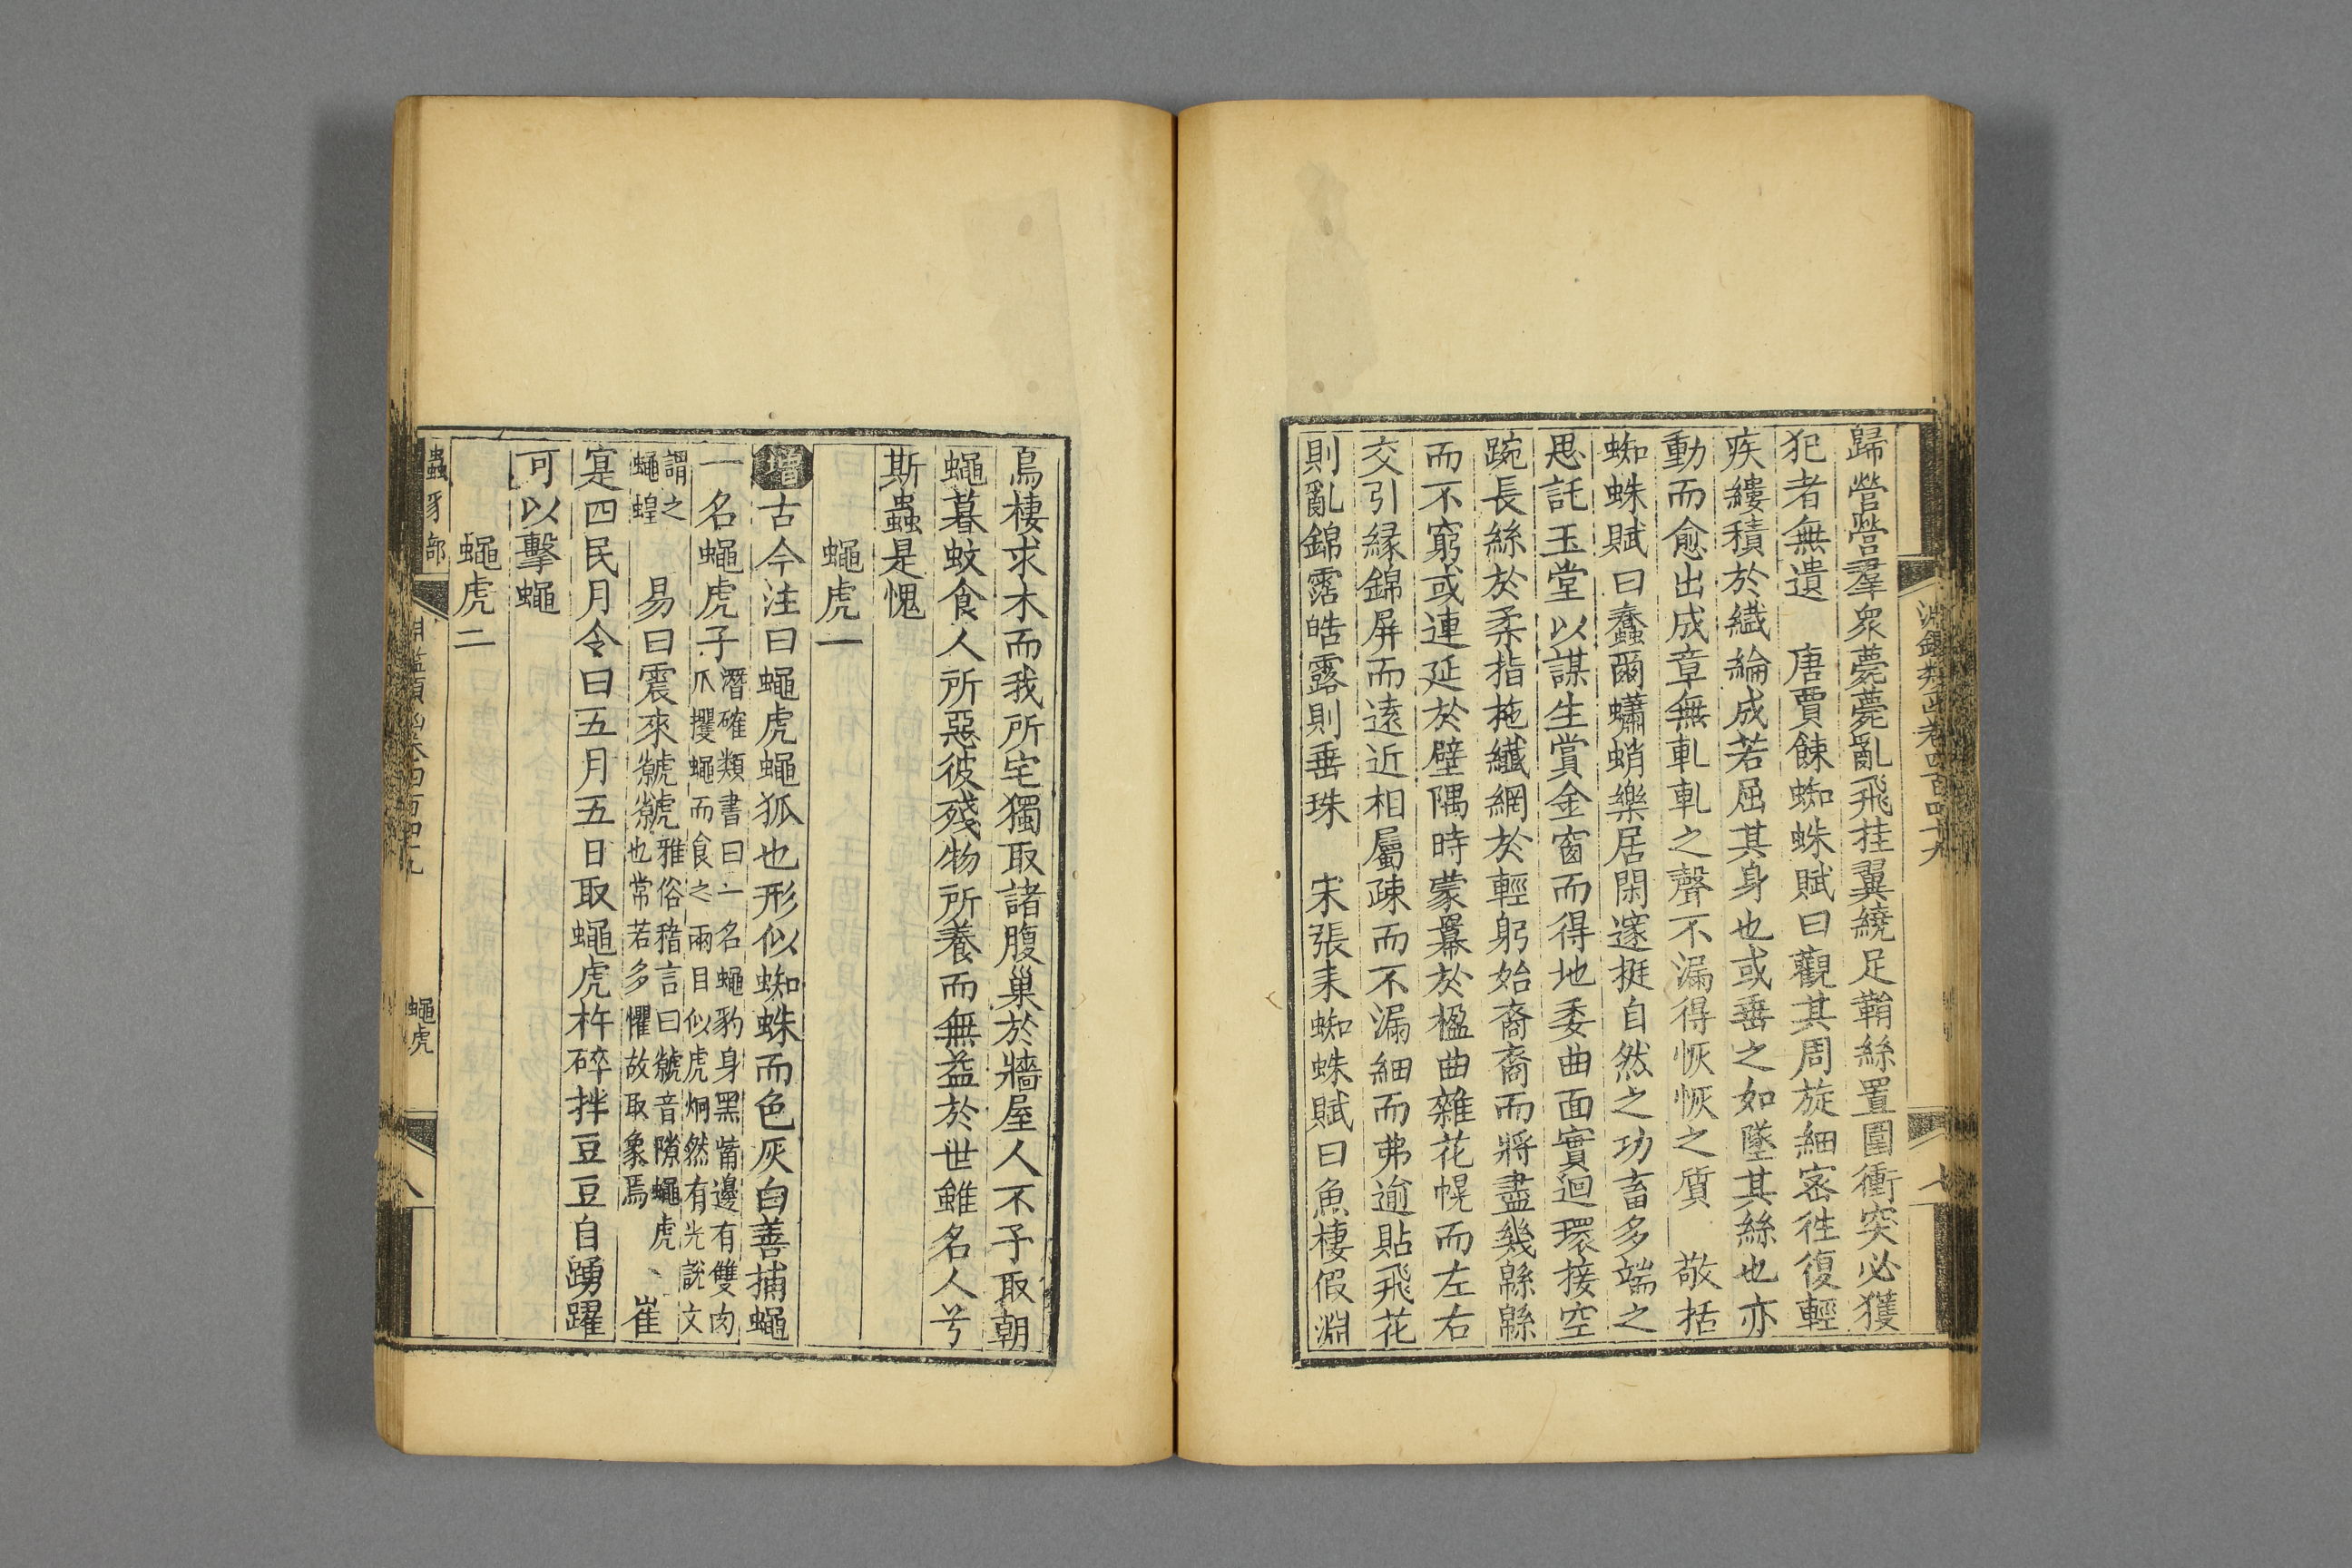 歸營營羣衆薨薨亂飛挂翼繞足鞘絲置圍衝突必獲
犯者無遺　唐賈餗蜘蛛賦曰觀其周旋細密往復輕
疾縷積於纎綸成若屈其身也或垂之如墜其絲也亦
動而愈出成章無軋軋之聲不漏得恢恢之質　敬括
蜘蛛賦曰蠢爾蠨蛸樂居閑邃挺自然之功畜多端之
思託玉堂以謀生賞金窗而得地委曲面實迴環接空
踠長絲於柔指拖纖網於輕躬始裔裔而將盡幾緜緜
而不窮或連延於壁隅時蒙羃於楹曲雜花幌而左右
交引緣錦屏而遠近相屬疎而不漏細而弗逾貼飛花
則亂錦霑皓露則垂珠　宋張耒蜘蛛賦曰魚棲假淵
鳥棲求木而我所宅獨取諸腹巢於牆屋人不予取朝
蠅暮蚊食人所惡彼殘物所養而無益於世雖名人兮
斯蟲是愧
蠅虎一
增古今注曰蠅虎蠅狐也形似蜘蛛而色灰白善捕蠅
一名蠅虎子潛確類書曰一名蠅豹身黑觜邊有雙肉
爪攫蠅而食之兩目似虎炯然有光說文
謂之
蠅蝗　易曰震來虩虩雅俗稽言曰虩音隙蠅虎
也常若多懼故取象焉　崔
寔四民月令曰五月五日取蠅虎杵碎拌豆豆自踴躍
可以擊蠅
蠅虎二
蟲豸部
淵鑑類函卷四百四十九
蠅虎
八
淵鑑類函卷四百四十九
七